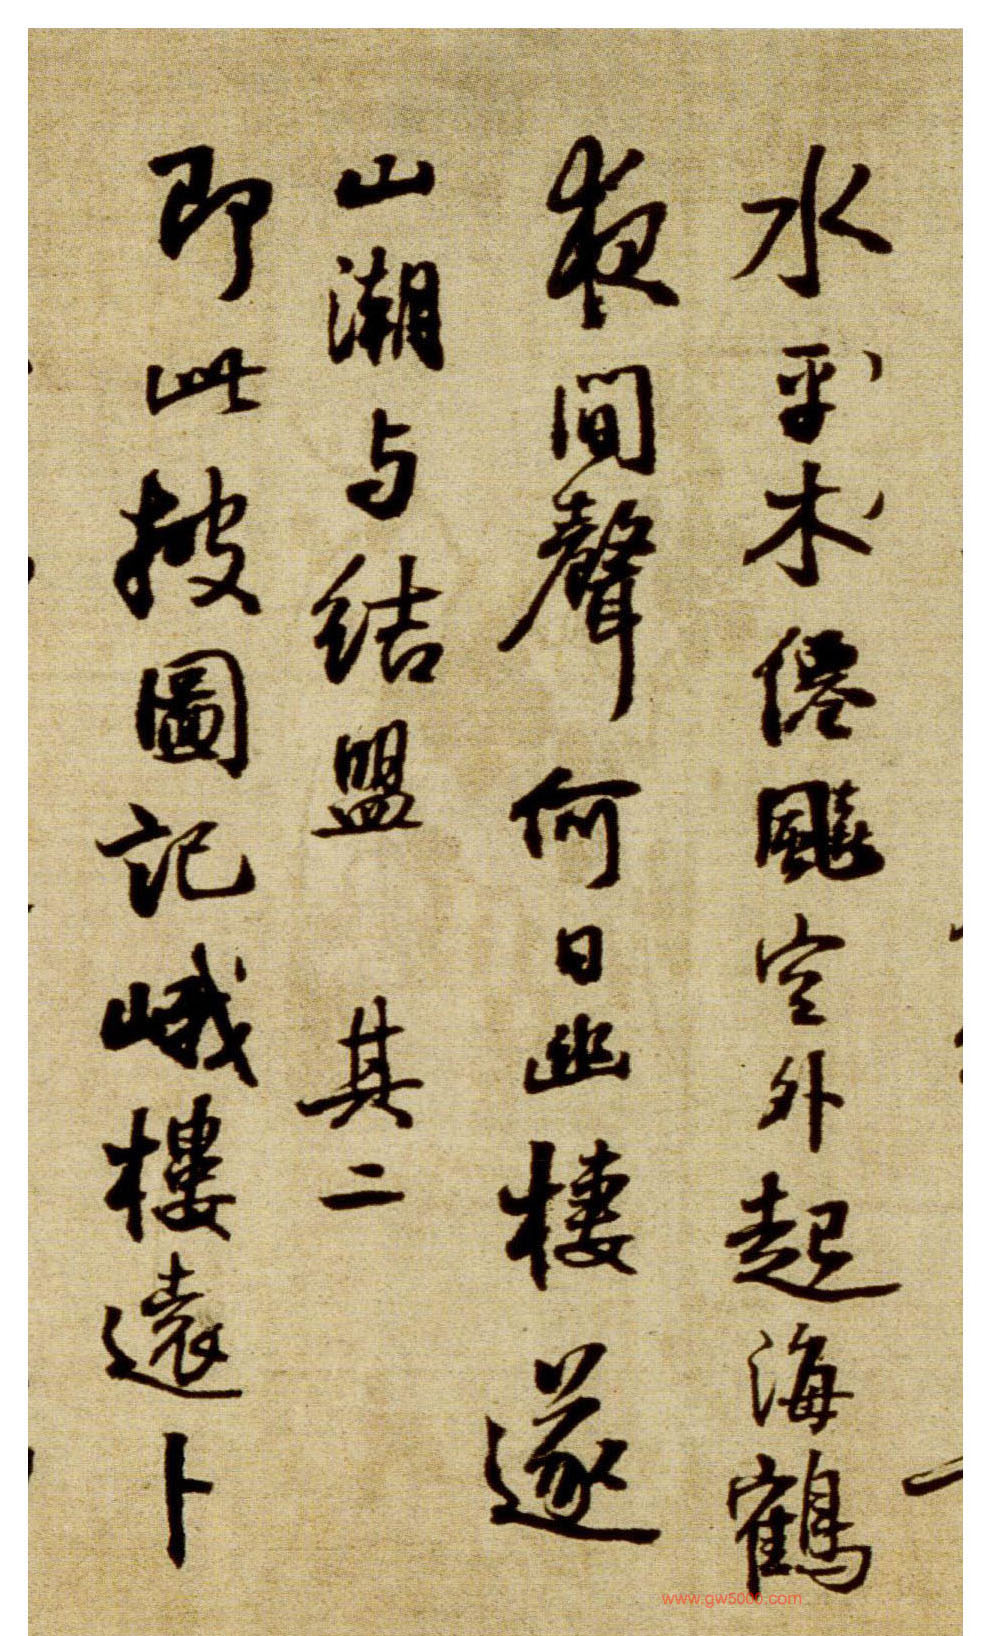 水平木僊飈空外起海鶴
夜間聲何日幽棲遂
山潮与结盟 其二
即此披圖記峨樓遠卜
www.gw5000.com